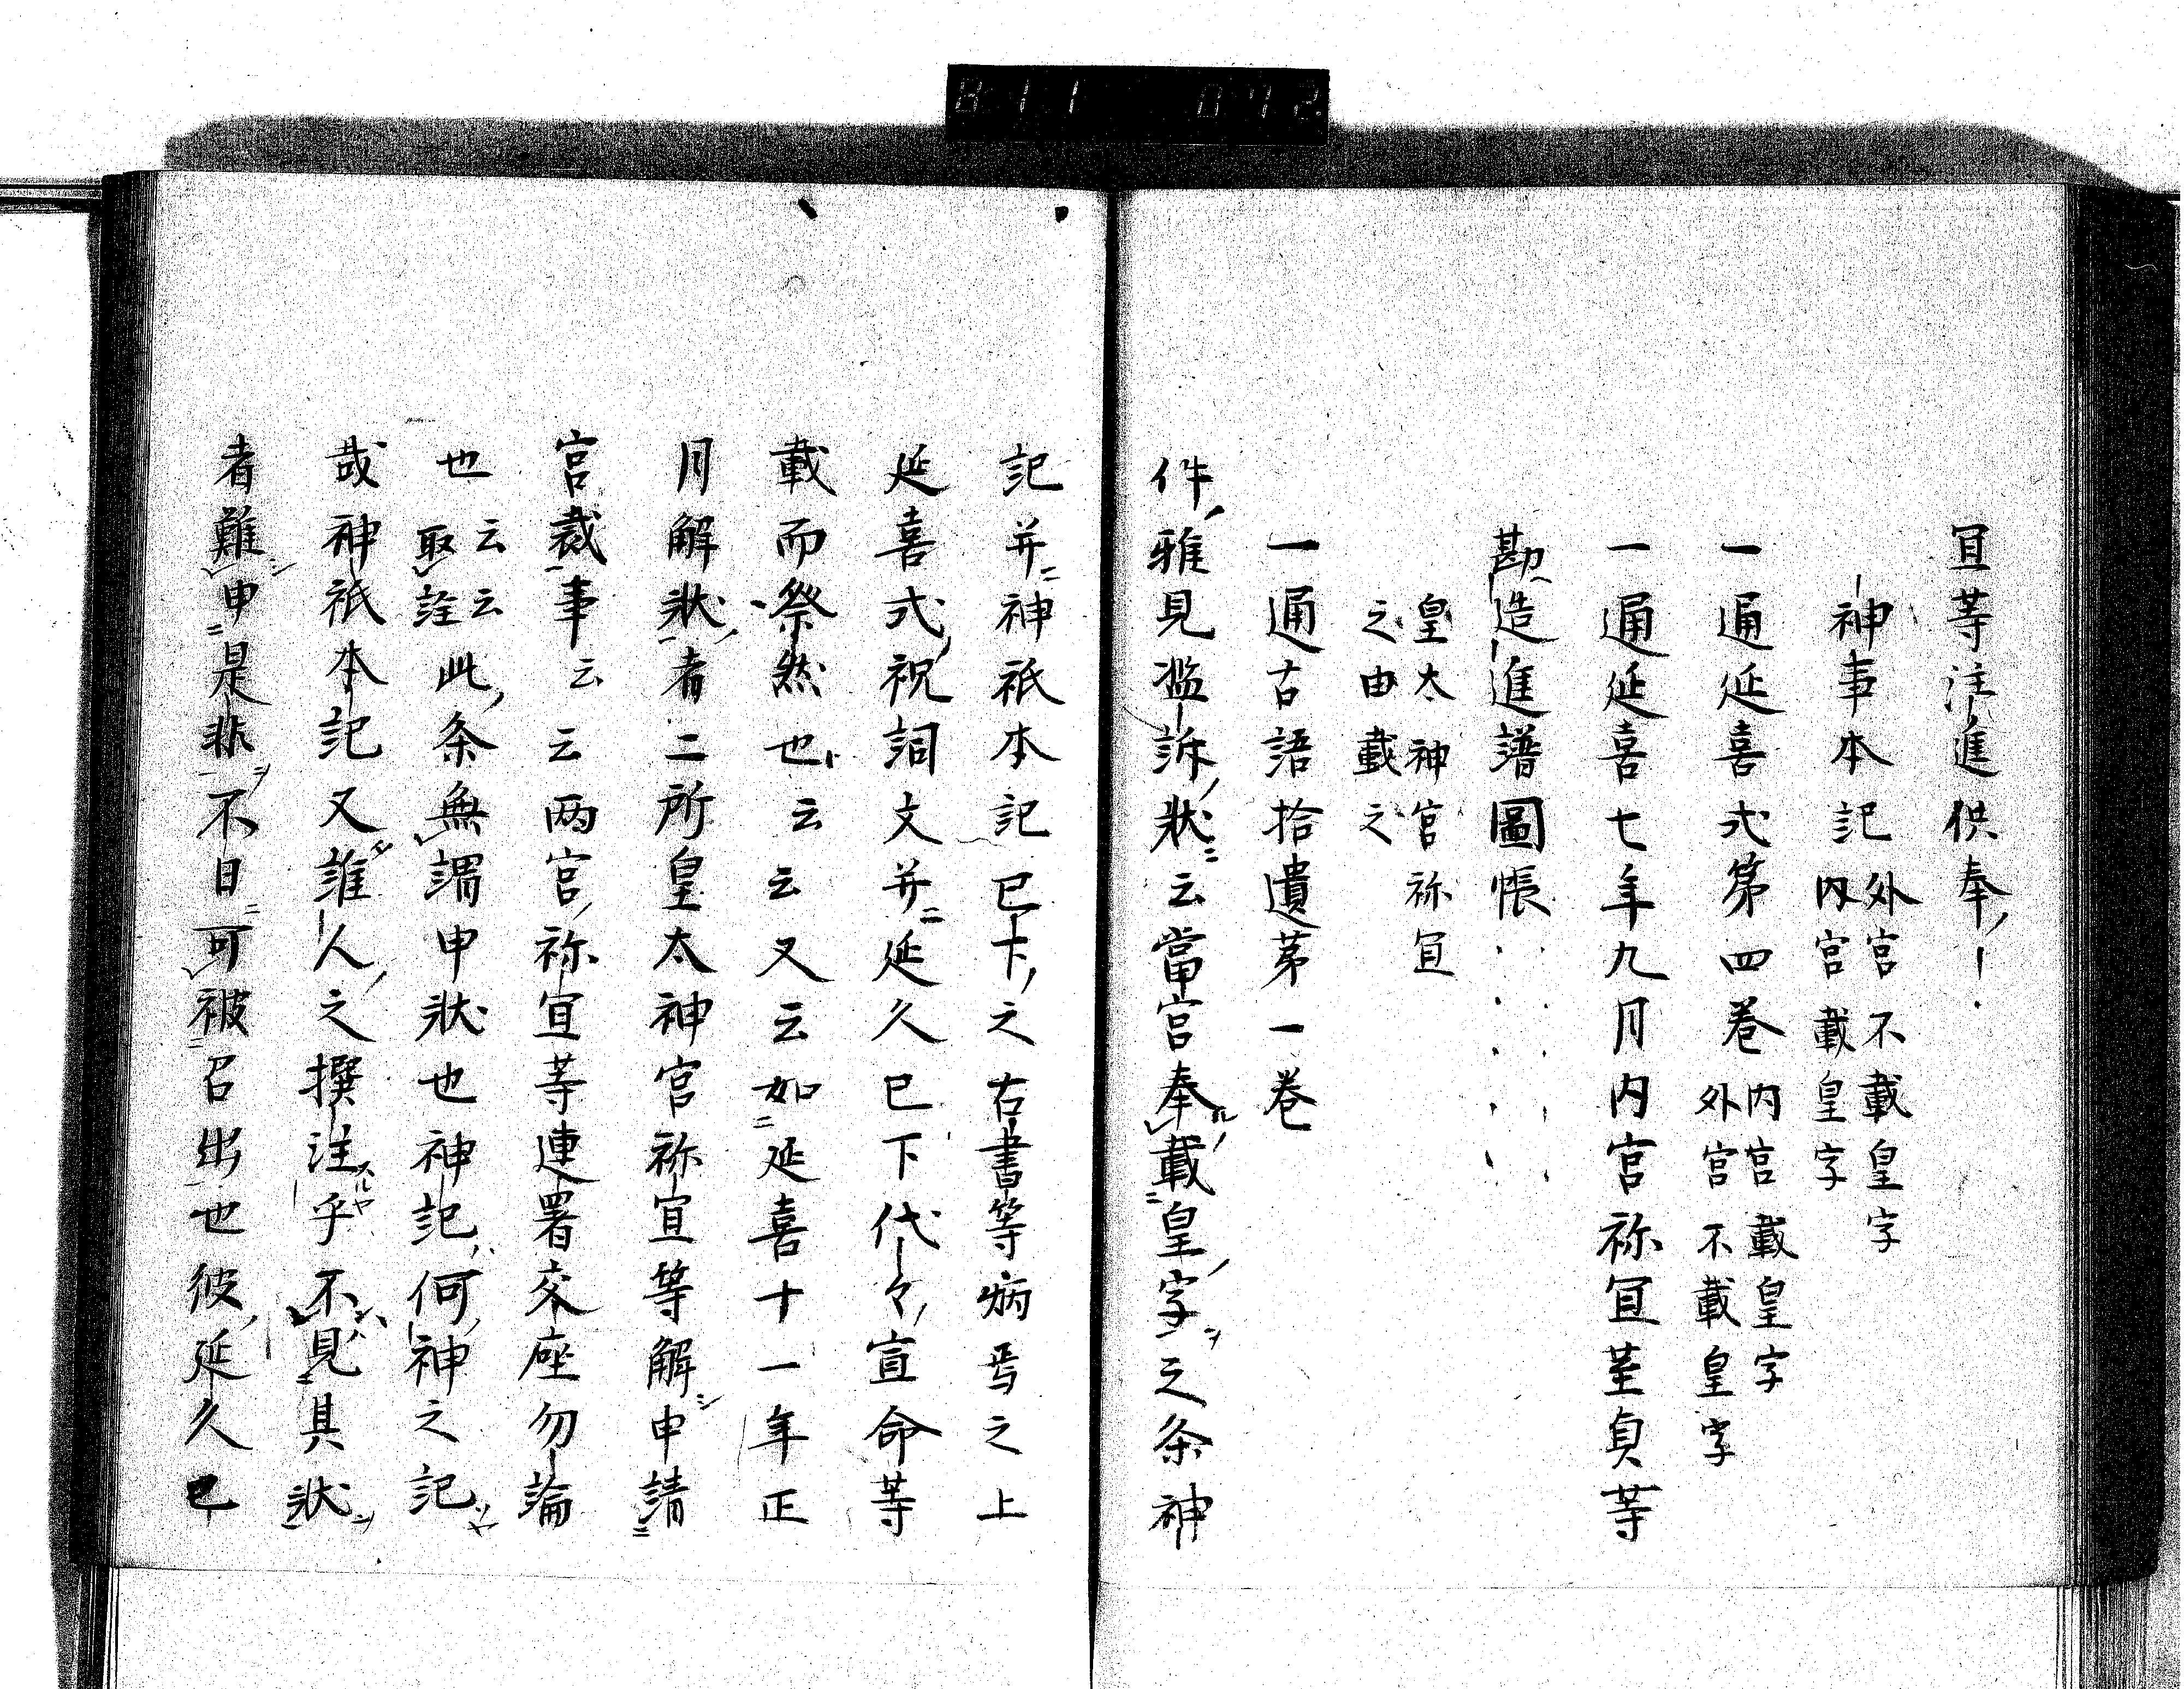 811 072
宜等注進供奉
神事本記外宮不載皇字
内宮載皇字
一通延喜式第四巻内宮載皇字
外宮不載皇字
一通延喜七年九月内宮祢宜荎貞等
勘造進譜圖帳
皇太神宮祢宜
之由載之
一通古語拾遺第一巻
件雅見濫訴状ニ云當宮奉ル載ニ皇字ヲ之条神
記并ニ神祇本記已下之右書等病焉之上
延喜式祝詞文并ニ延久已下代々宣命等
載而祭然也云云又云如ニ延喜十一年正
月解状者二所皇太神宮祢宜等解シ申請ニ
宮裁事云云两宮祢宜等連署交座勿論
也云云取詮此条無謂申状也神記何神之記ソヤ
哉神祇本記又誰人之撰注スルヤ乎不見具状ヲ
者難シ申ニ是非ヲ不日ニ可被召出也彼延久已